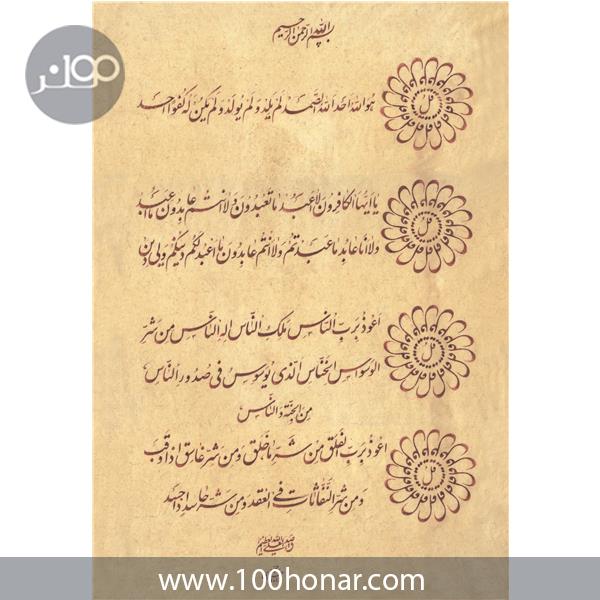 ۱۰۰هنر
بسم الله الرحمن الرحیم
قل
هو الله احد الله الصمد لم یلد ولم یولد ولم یکن له کفوا احد
قل
یا ایها الکافرون لا اعبد ما تعبدون ولا انتم عابدون ما اعبد
ولا انا عابد ما عبدتم ولا انتم عابدون ما اعبد لکم دینکم ولی دین
قل
اعوذ برب الناس ملک الناس اله الناس من شر
الوسواس الخناس الذی یوسوس فی صدور الناس
من الجنة والناس
قل
اعوذ برب الفلق من شر ما خلق ومن شر غاسق اذا وقب
ومن شر النفاثات فی العقد ومن شر حاسد اذا حسد
صدق الله العلی العظیم
www.100honar.com